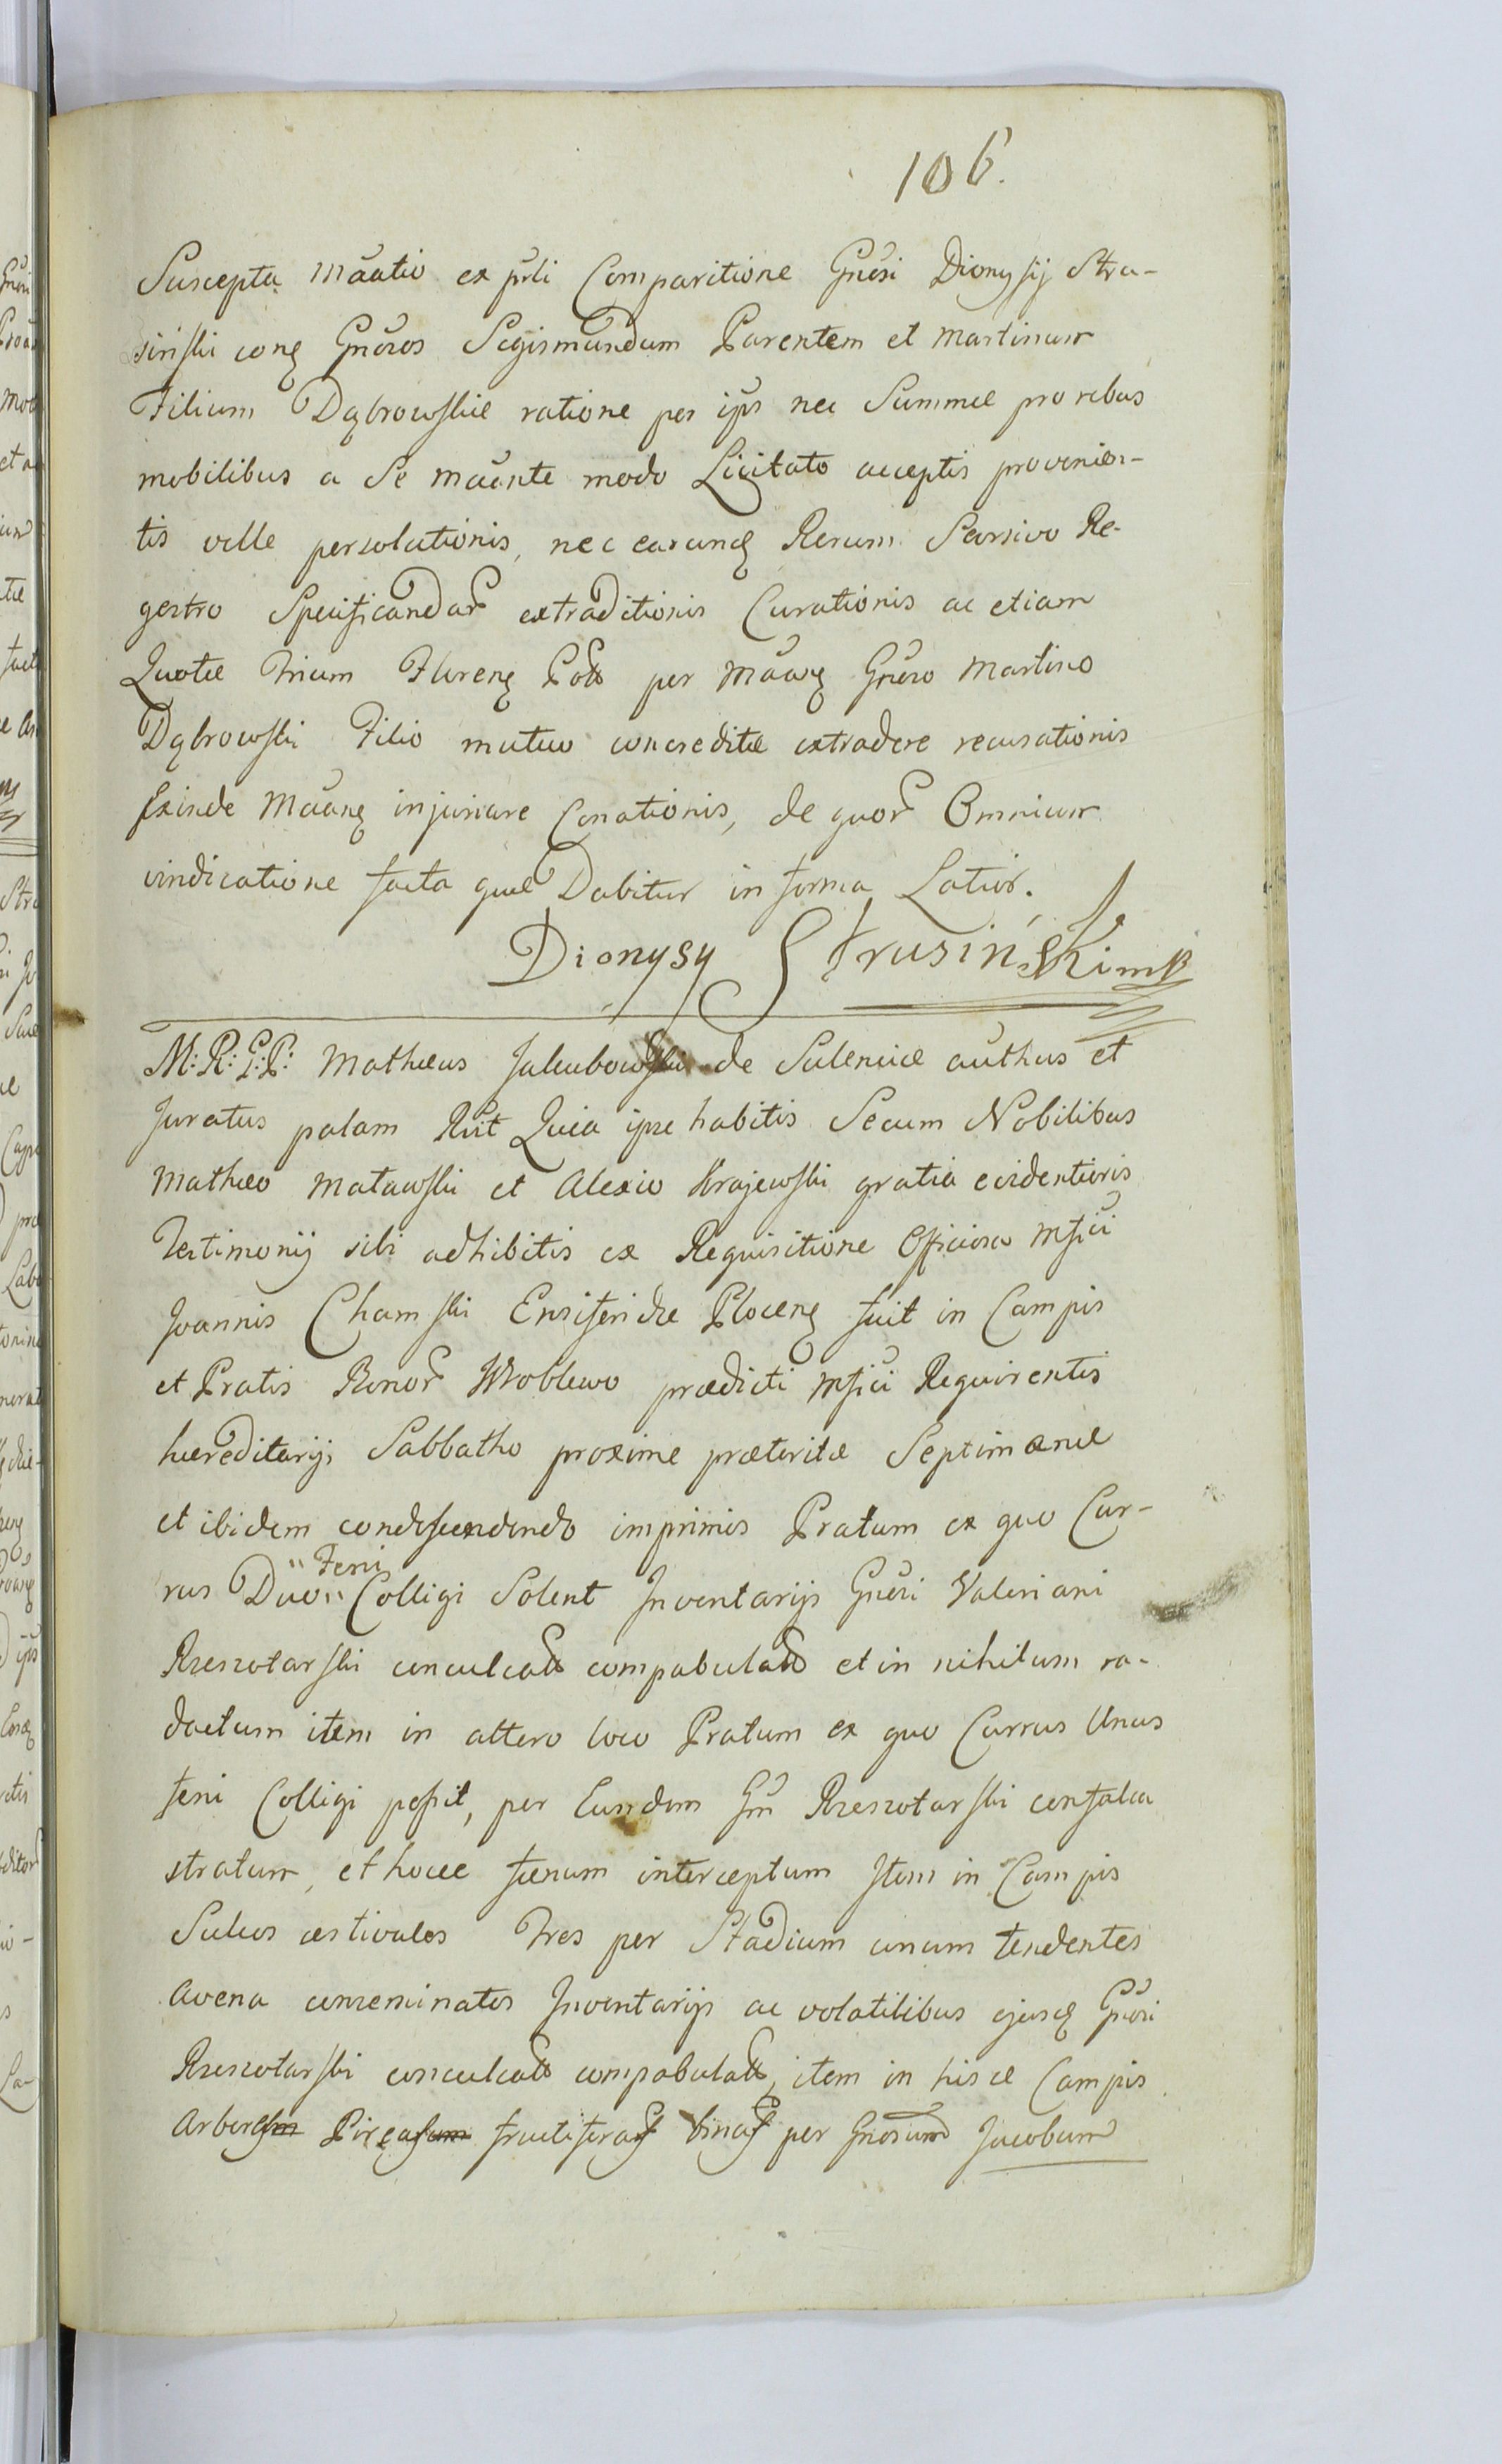 106.
Suscepta mãatio ex prli Comparitione Gnosi Dionysij Stru-
sinski conq Gnosos Sigismundum Parentem et Martinum
Filium Dąbrowskie ratione per ips nec Summæ pro rebus
mobilibus a Se maante modo Licitato acceptis provenien-
tis velle persolutionis, nec earunq Rerum Seorsivo Re-
gestro Specificandar extraditionis Curationis ac etiam
Quotæ trium Florenq Poll per maanq Gnoso Martino
Dąbrowski Filio mutuo concreditæ extradere recusationis
Exinde Maanq injuriare Conationis, de quor Omnium
vindicatione facta quæ Dabitur in forma Latior.
Dionysy Strusiński mp
M: R: G: P: Mathæus Jakubowski de Sulencice authus et
Juratus palam Rŭt Quia ipse habitis Secum Nobilibus
Mathæo Matawski et Alexio Krajewski gratia evidentioris
Testimonij sibi adhibitis ex Requisitione Officiosa Mfici
Joannis Chamski Ensiferidæ Plocenq fuit in Campis
et Pratis Bonor Wroblewo prædicti Mfici Requirentis
hæreditarijs Sabbatho proxime præteritæ Septimanæ
et ibidem condescendendo imprimis Pratum ex quo Cur-
rus Duo " Feni " Colligi Solent Inventarijs Gnosi Valeriani
Rzeszotarski conculcatt compabulatt et in nihilum re-
dactum item in altero loco Pratum ex quo Currus Unus
feni Colligi possit, per Eundem Gm Rzeszotarski confalca
stratum, et hocce fænum interceptum Item in Campis
Sulcos æstivales tres per Stadium unum tendentes
avena conseminatos Inventarijs ac volatilibus ejusq Gnosi
Rzeszotarski conculcatt compabulatt, item in hisce Campis
Arbores Pireas fructiferas binas per Gnosum Jacobum